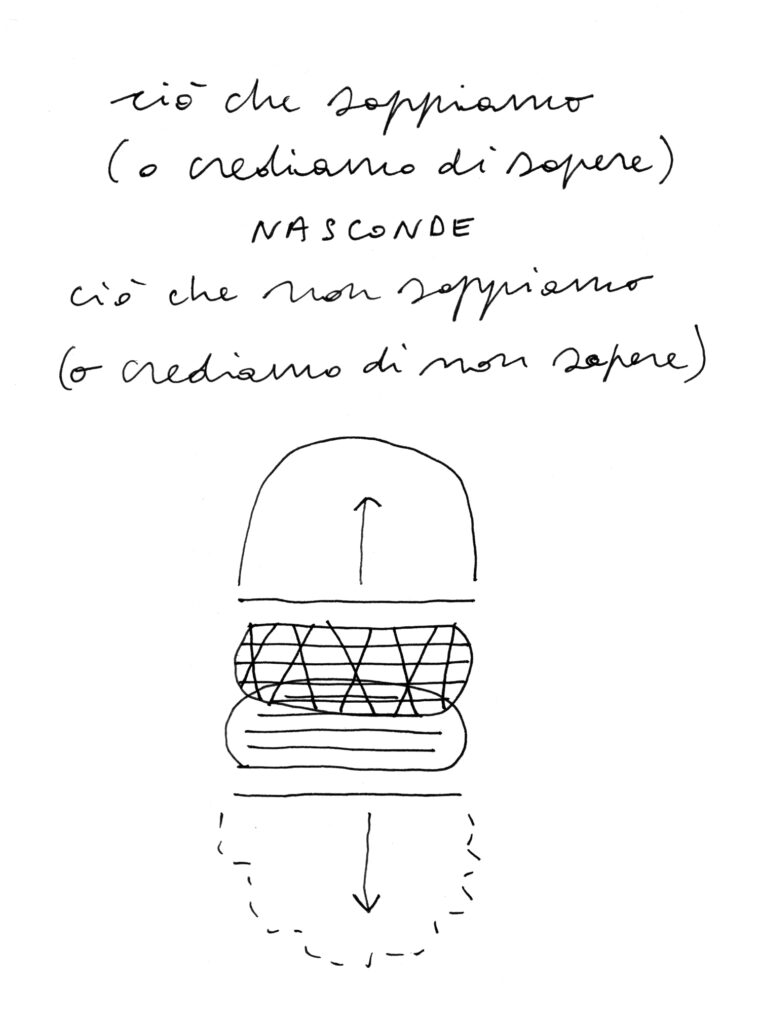 ciò che sappiamo
(o crediamo di sapere)
NASCONDE
ciò che non sappiamo
(o crediamo di non sapere)